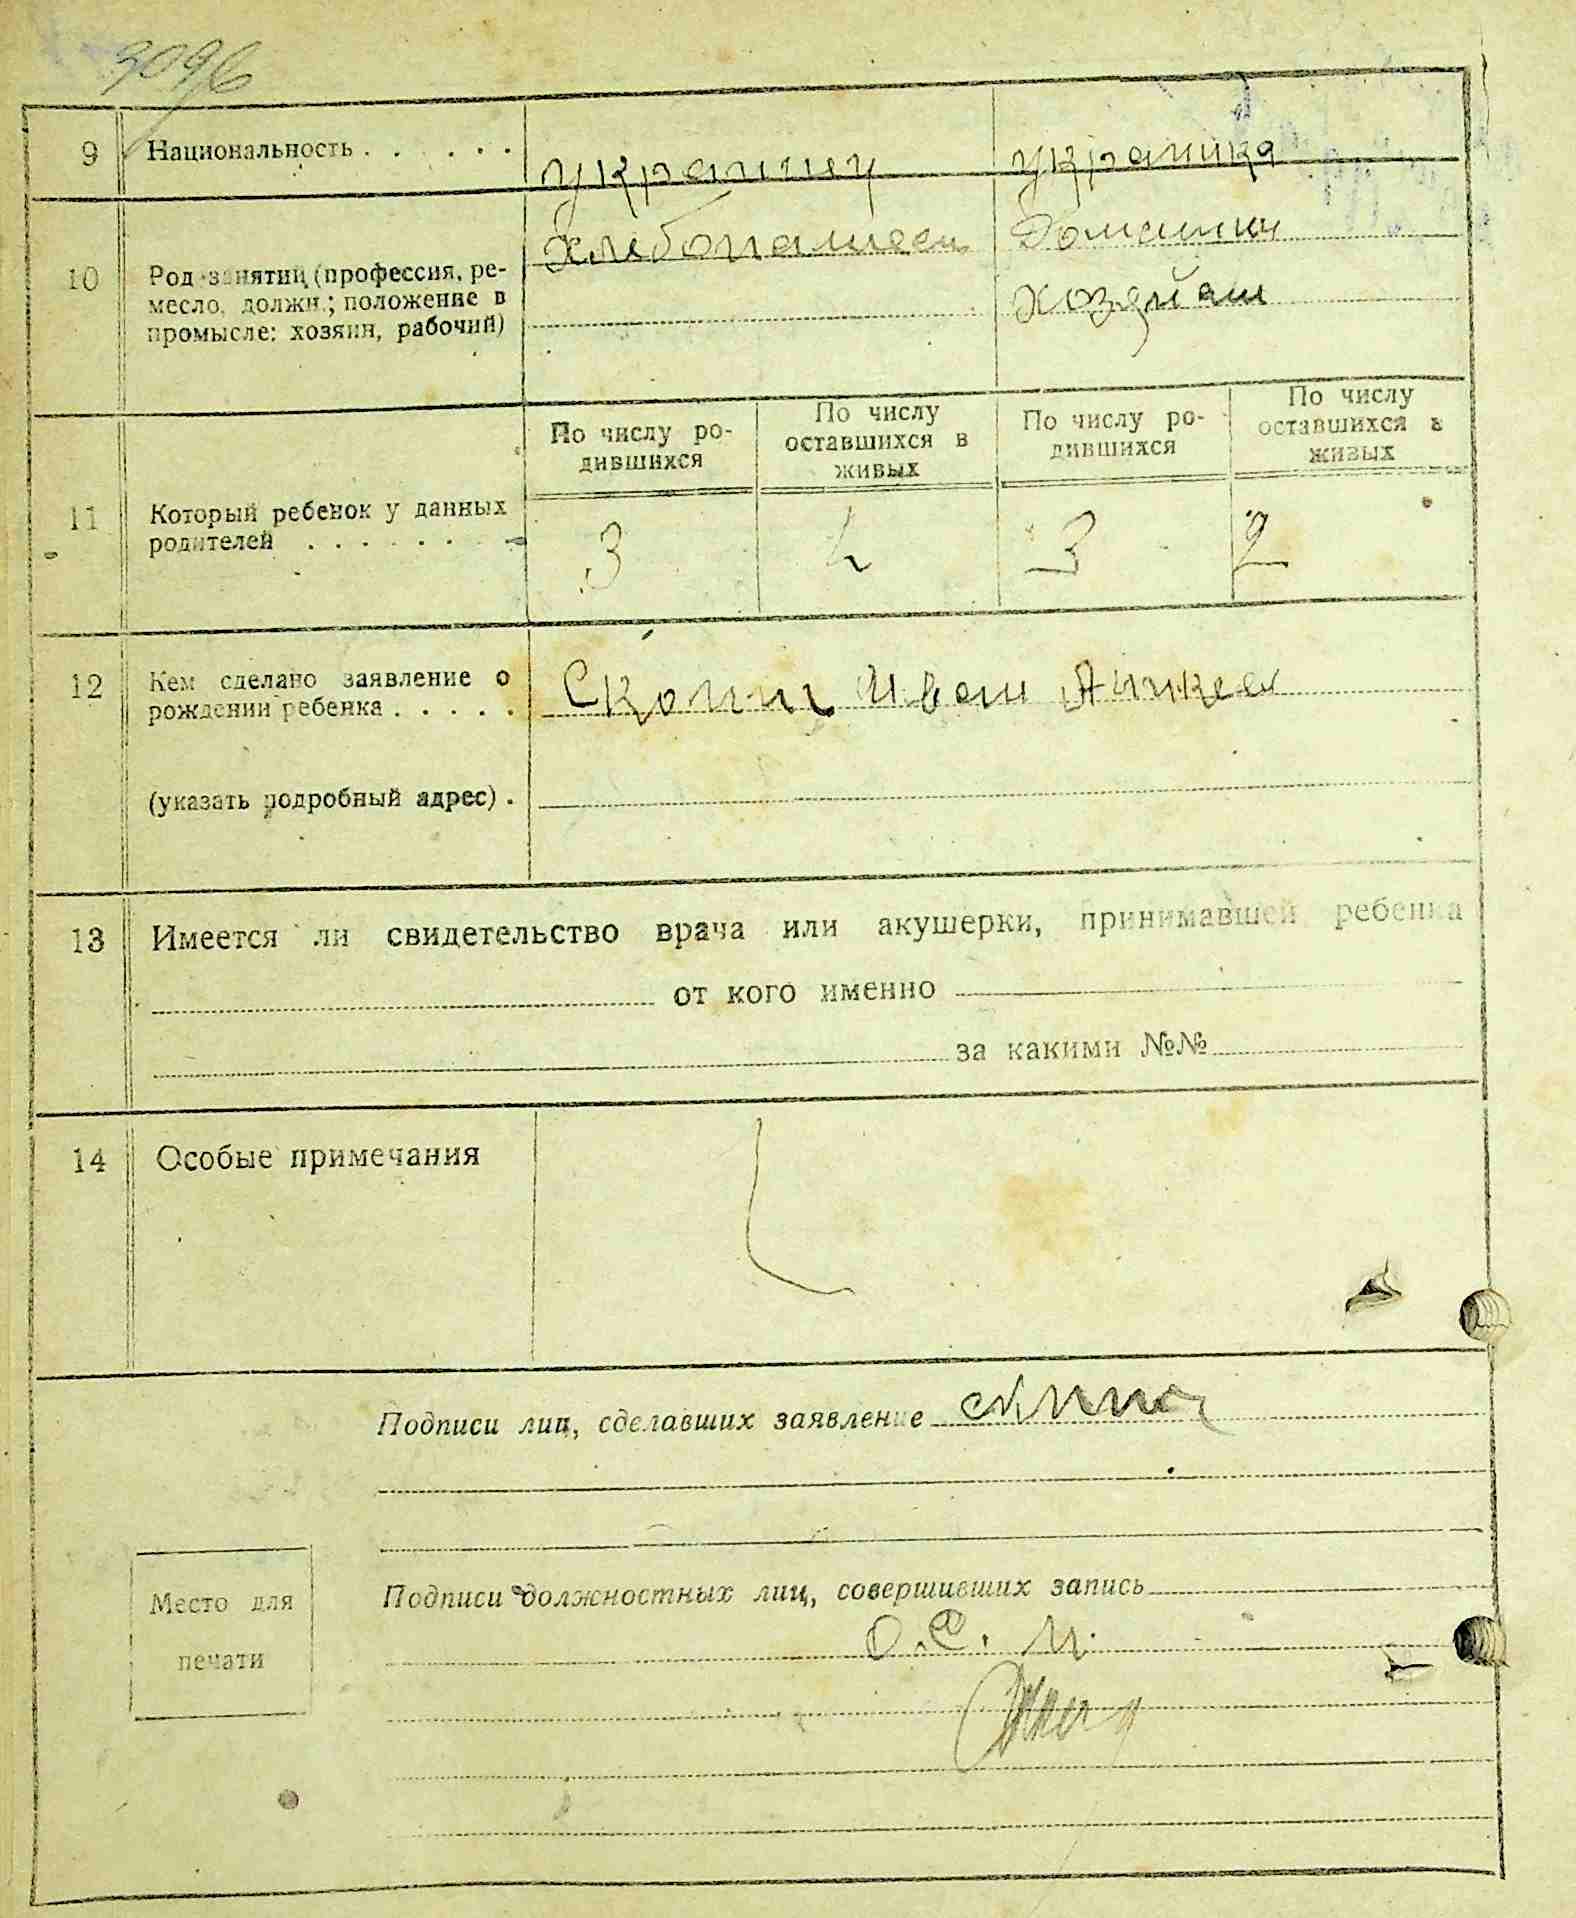 3096
9 Национальность . . . . . . украинец украинка
10 Род занятий (профессия, ре-
месло, должн.; положение в
промысле: хозяин, рабочий)
хлебопашец
Домашня
хозяйка
По числу ро-
дившихся
По числу
оставшихся в
живых
По числу ро-
дившихся
По числу
оставшихся в
живых
11 Который ребенок у данных
родителей . . . . . . .
3 2 3 2
12 Кем сделано заявление о
рождении ребенка . . . . .
Иван
(указать подробный адрес) .
13 Имеется ли свидетельство врача или акушерки, принимавшей ребенка
от кого именно
за какими №№
14 Особые примечания
Подписи лиц, сделавших заявление
Место для
печати
Подписи должностных лиц, совершивших запись